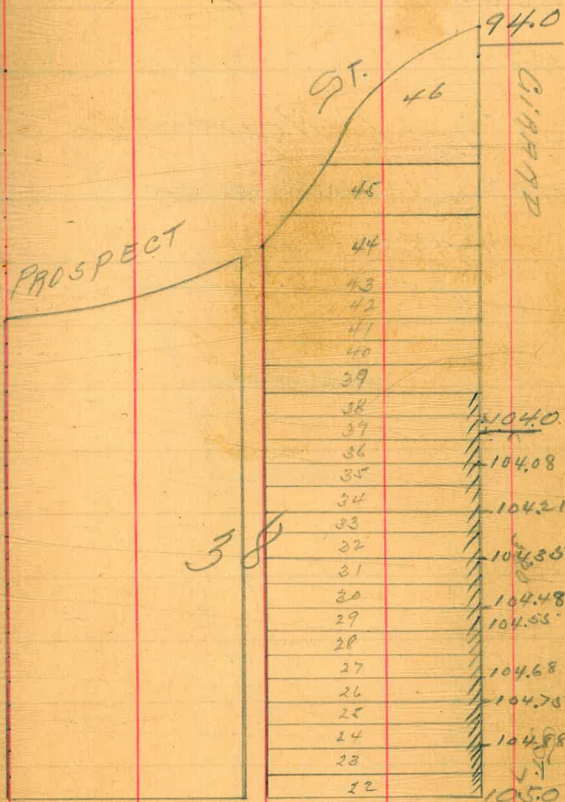 94.0
ST.
46
GRAND
45
PROSPECT
44
43
42
41
40
39
38
104.0
37
36
104.08
35
34
104.21
33
38
32
104.35
31
30
104.48
29
104.55
28
27
104.68
26
104.75
25
24
104.88
23
ST.
22
105.0